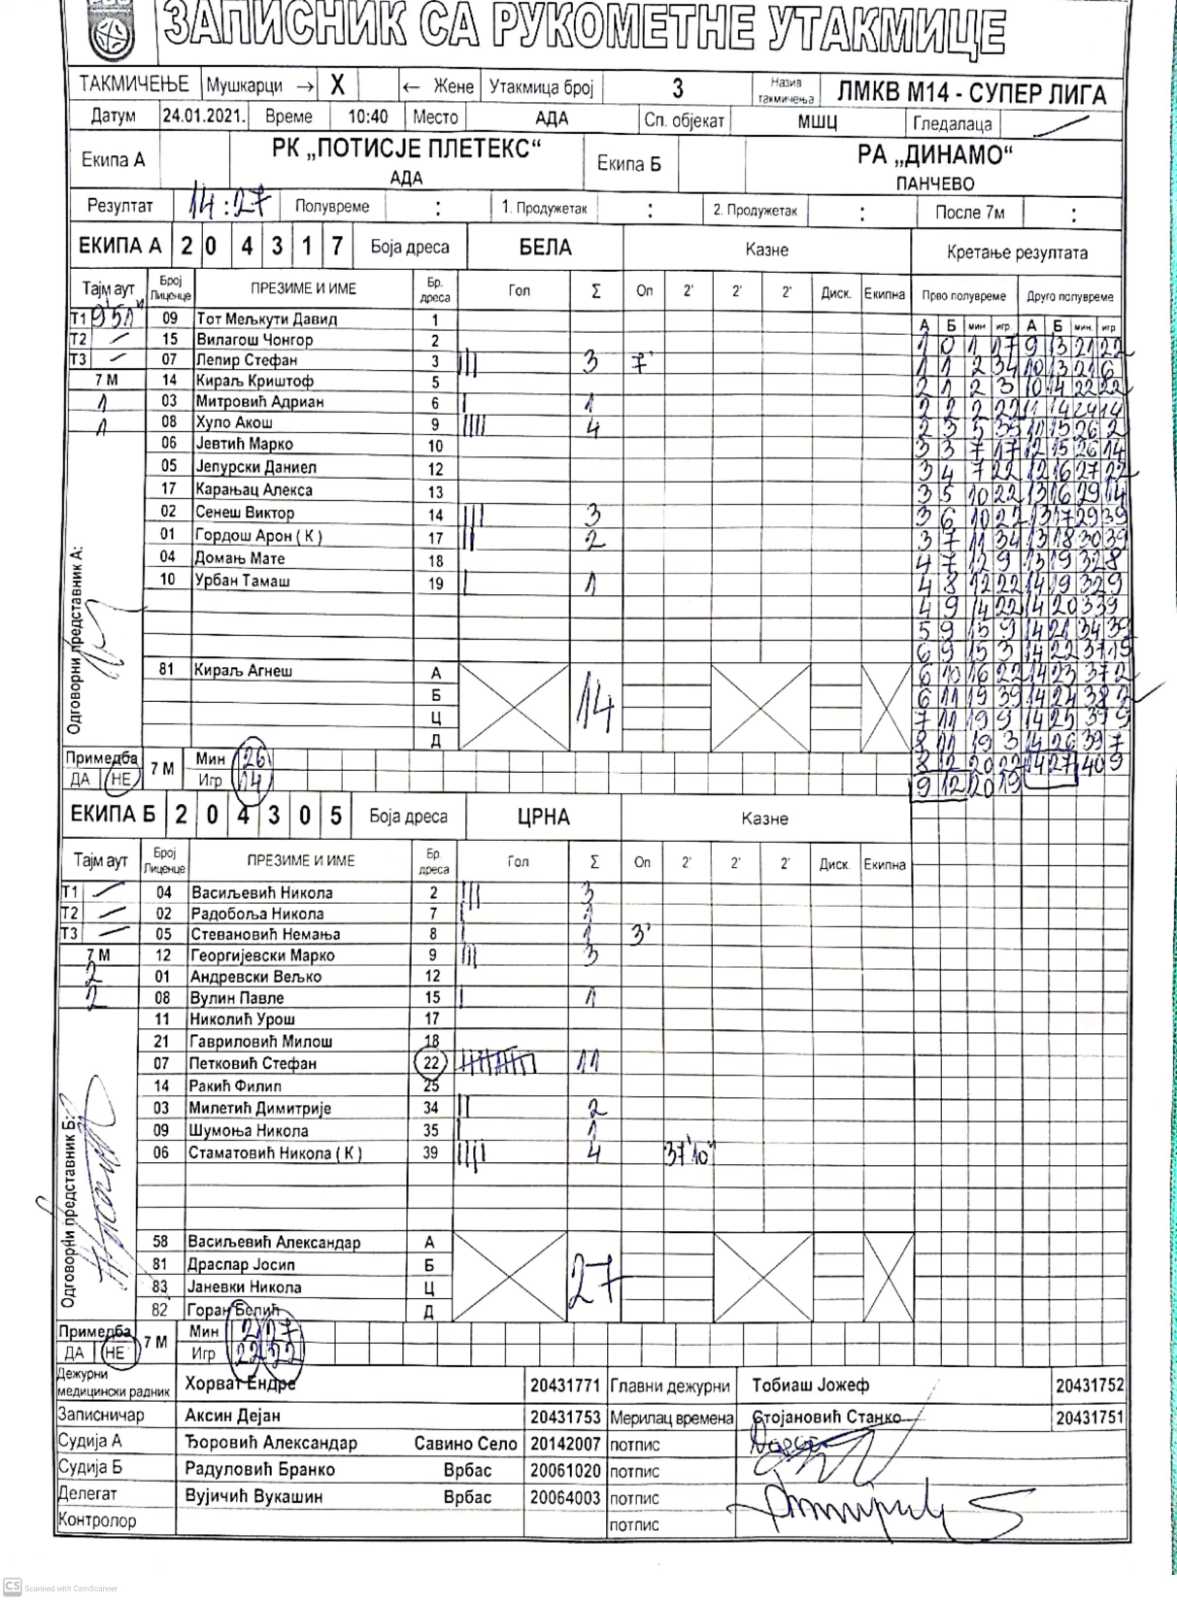 ЗАПИСНИК СА РУКОМЕТНЕ УТАКМИЦЕ
ТАКМИЧЕЊЕ Мушкарци → X ← Жене Утакмица број 3 Назив такмичења ЛМКВ М14 - СУПЕР ЛИГА
Датум 24.01.2021. Време 10:40 Место АДА Сп. објекат МШЦ Гледалаца
Екипа А РК „ПОТИСЈЕ ПЛЕТЕКС“ АДА Екипа Б РА „ДИНАМО“ ПАНЧЕВО
Резултат 14:27 Полувреме : 1. Продужетак : 2. Продужетак : После 7м :
ЕКИПА А 2 0 4 3 1 7 Боја дреса БЕЛА Казне Кретање резултата
Тајм аут Број Лиценце ПРЕЗИМЕ И ИМЕ Бр. дреса Гол Σ Оп 2' 2' 2' Диск. Екипна Прво полувреме Друго полувреме
А Б мин игр А Б мин. игр
Т1 09 Тот Мељкути Давид 1
Т2 15 Вилагош Чонгор 2
Т3 07 Лепир Стефан 3 3 7'
7 М 14 Кираљ Криштоф 5
1 03 Митровић Адриан 6 1
1 08 Хуло Акош 9 4
06 Јевтић Марко 10
05 Јепурски Даниел 12
17 Карањац Алекса 13
02 Сенеш Виктор 14 3
01 Гордош Арон ( К ) 17 2
04 Домањ Мате 18
10 Урбан Тамаш 19 1
Одговорни представник А:
81 Кираљ Агнеш А 14
Б
Ц
Д
Примедба ДА НЕ 7 М Мин 26
Игр 14
1 0 1 17 9 13 21 22
1 1 2 34 10 13 21 6
2 1 2 3 10 14 22 22
2 2 2 22 11 14 24 14
3 3 7 17 12 15 26 14
3 4 7 22 12 16 27 22
3 5 10 22 13 16 29 14
3 6 10 22 13 17 29 39
3 7 11 34 13 18 30 39
4 7 12 9 13 19 32 8
4 8 12 22 14 19 32 9
4 9 14 22 14 20 33 9
5 9 15 9 14 21 34 39
6 9 15 3 14 22 37 15
6 10 16 22 14 23 37 2
6 11 19 39 14 24 38 2
7 11 19 9 14 25 39 9
8 11 19 3 14 26 39 7
8 12 20 22 14 27 40 9
9 12 20 19
ЕКИПА Б 2 0 4 3 0 5 Боја дреса ЦРНА Казне
Тајм аут Број Лиценце ПРЕЗИМЕ И ИМЕ Бр. дреса Гол Σ Оп 2' 2' 2' Диск. Екипна
Т1 04 Васиљевић Никола 2 3
Т2 02 Радобоља Никола 7 1
Т3 05 Стевановић Немања 8 1 3'
7 М 12 Георгијевски Марко 9 3
2 01 Андревски Вељко 12
2 08 Вулин Павле 15 1
11 Николић Урош 17
21 Гавриловић Милош 18
07 Петковић Стефан 22 11
14 Ракић Филип 25
03 Милетић Димитрије 34 2
09 Шумоња Никола 35 1
06 Стаматовић Никола ( К ) 39 4 37'10"
Одговорни представник Б:
58 Васиљевић Александар А 27
81 Драслар Јосип Б
83 Јаневки Никола Ц
82 Горан Белић Д
Примедба ДА НЕ 7 М Мин 2 27
Игр 22 22
Дежурни медицински радник Хорват Ендре 20431771 Главни дежурни Тобиаш Јожеф 20431752
Записничар Аксин Дејан 20431753 Мерилац времена Стојановић Станко 20431751
Судија А Ђоровић Александар Савино Село 20142007 потпис
Судија Б Радуловић Бранко Врбас 20061020 потпис
Делегат Вујичић Вукашин Врбас 20064003 потпис
Контролор потпис
CS Scanned with CamScanner